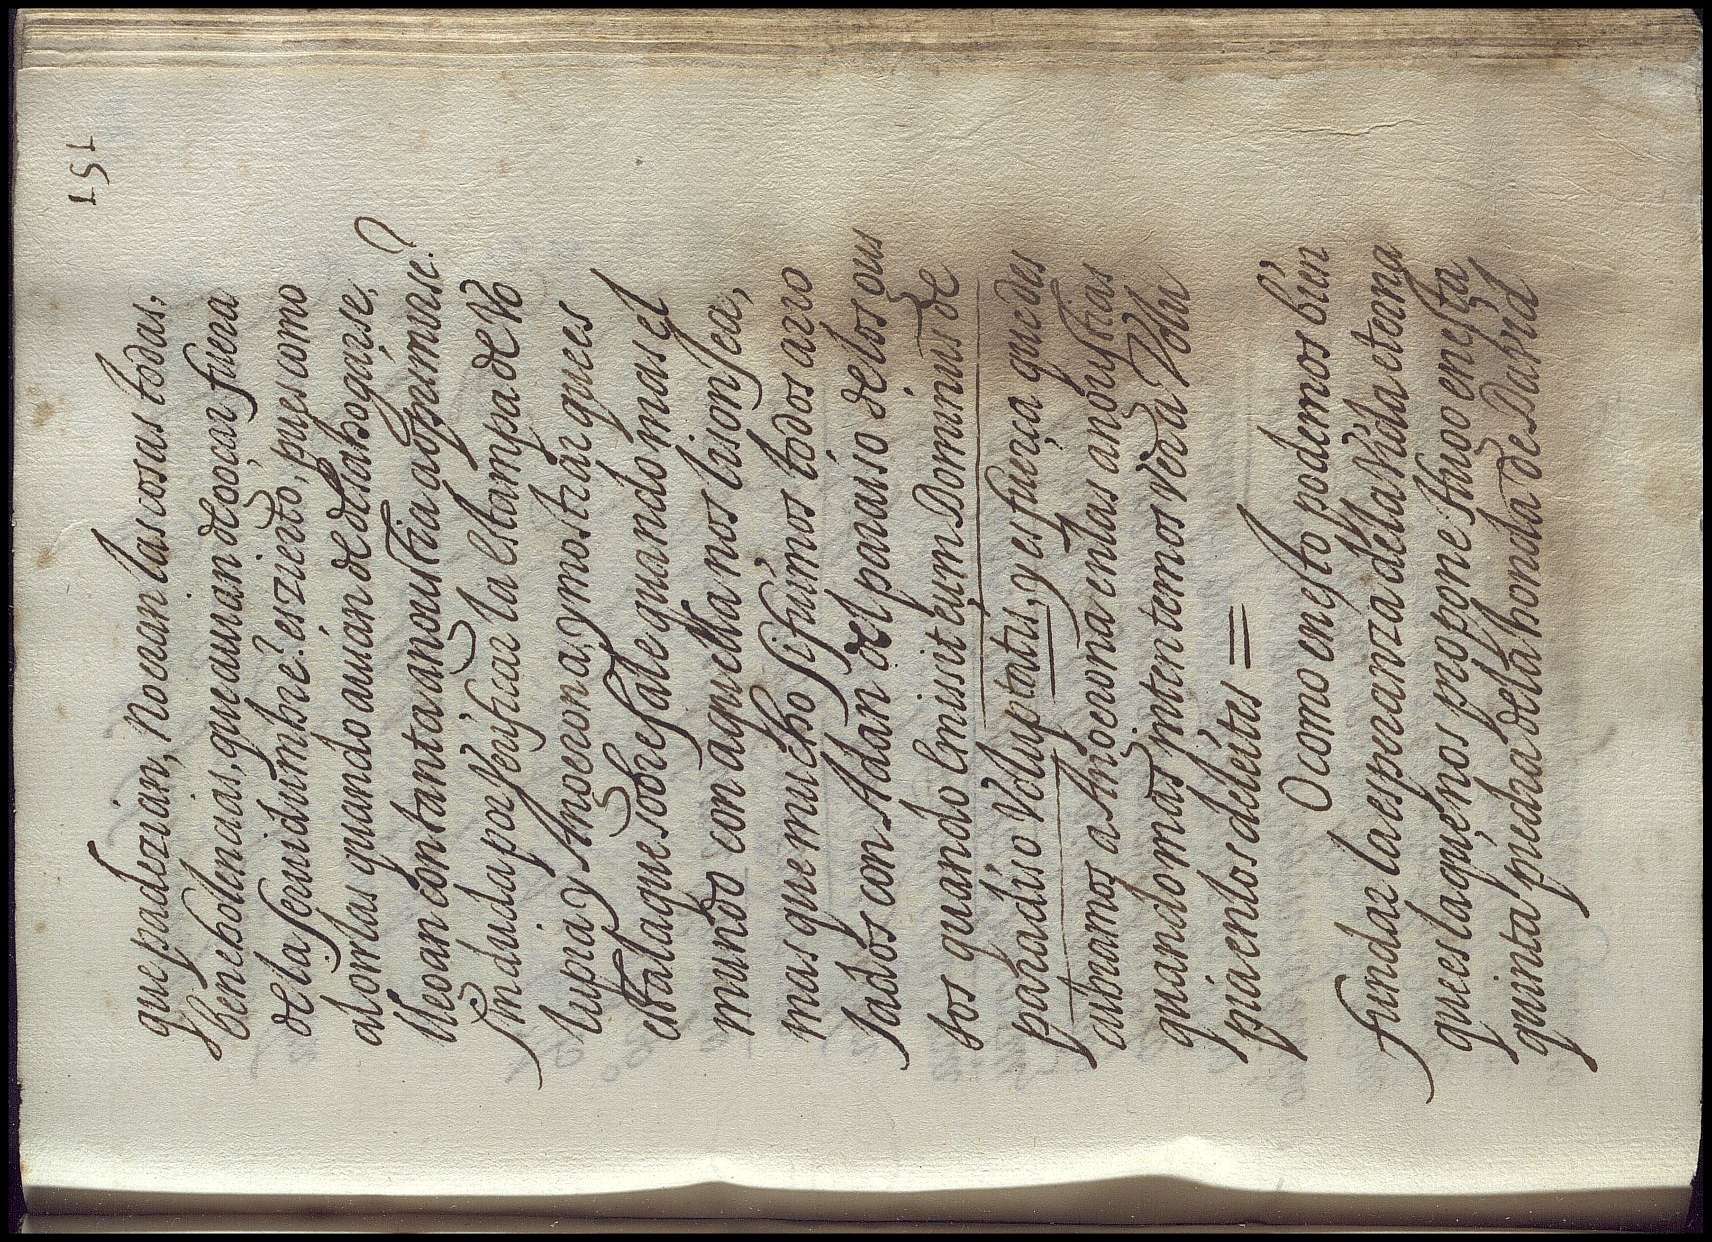 151
que padezian, No eran las cosas todas,
benebolencias, que auian de gozar fuera
de la seruidumbre? es zierto, pues como
al onrlas quando auian de elahogarse,
llegan con tanta angustia a oprimirse?
Induda por Verificar la estampa de Vo
lupia y Angerona, y mostrar que es
esta la que sobresale quando mas el
mundo con aquella nos lisonsea,
mas que mucho si fuimos todos arro
jados con Adan del paraiso delos gus
tos quando Emissit eum Dominus de
paradiso Voluptatis, y es fuerça que des
cubramos a Angerona en las angustias
quando mas intentemos ver a Volu
pia en los deleites =
O como en esto podemos bien
fundar la esperanza dela Vida eterna
que es la que nos propone stuuo en esta
quinta piedra dela honda de Dabid